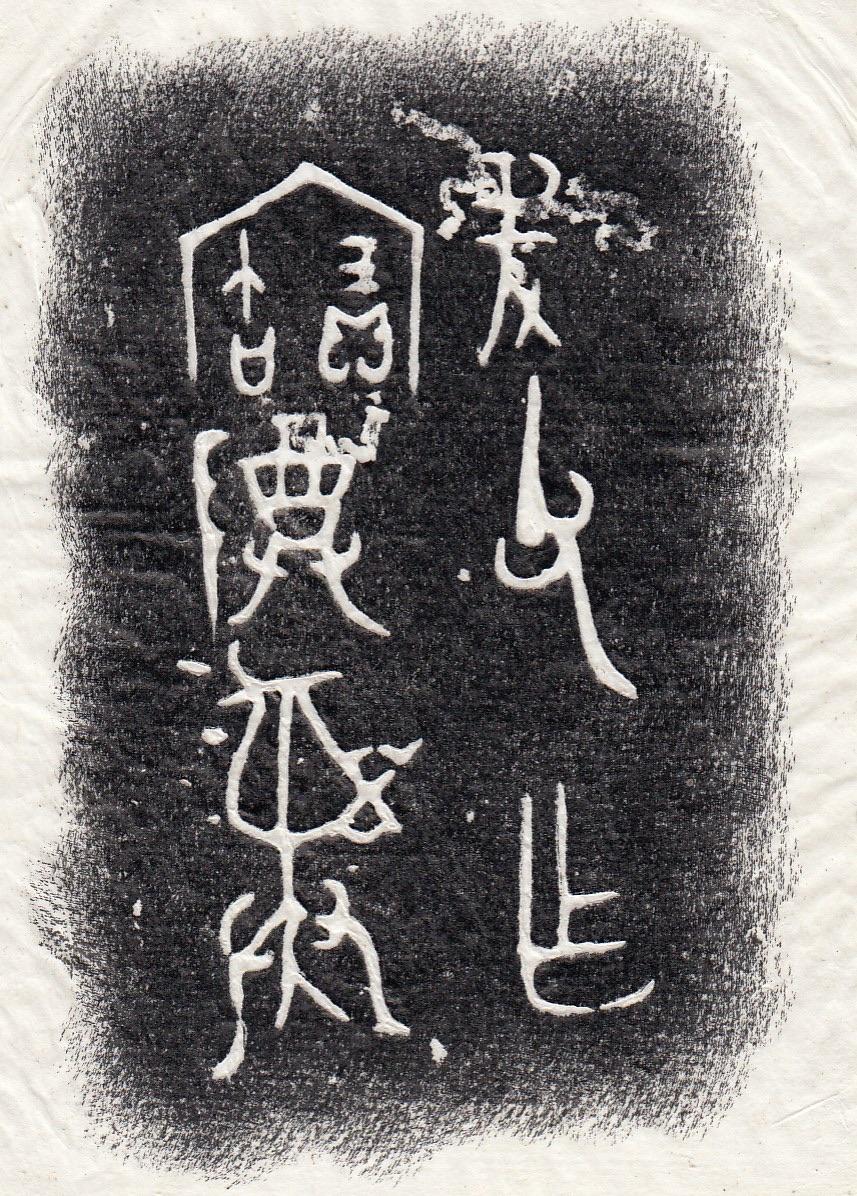 父乍
寶尊彝